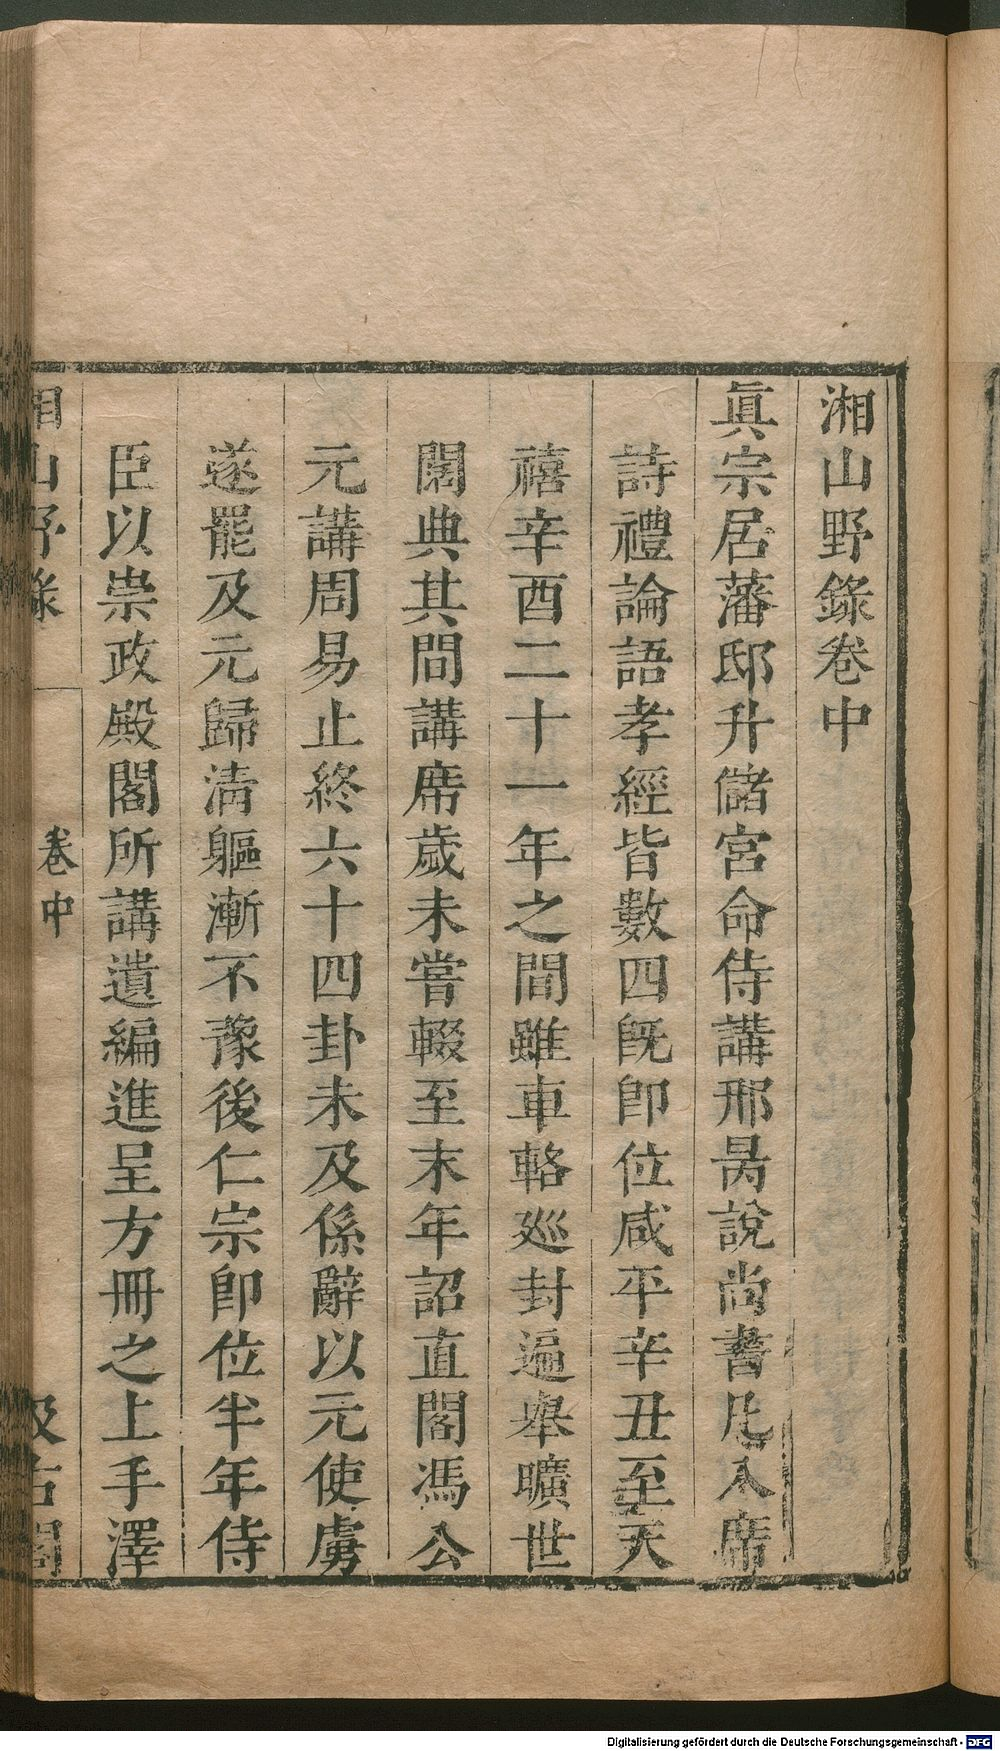 湘山野錄卷中
眞宗居藩邸升儲宮命侍講邢昺說尚書凡八席
詩禮論語孝經皆數四旣卽位咸平辛丑至天
禧辛酉二十一年之間雖車輅巡封遍舉曠世
闊典其間講席歲未嘗輟至末年詔直閣馮公
元講周易止終六十四卦未及係辭以元使虜
遂罷及元歸淸軀漸不豫後仁宗卽位半年侍
臣以崇政殿閣所講遺編進呈方冊之上手澤
湘山野錄 卷中 汲古閣
Digitalisierung gefördert durch die Deutsche Forschungsgemeinschaft - DFG